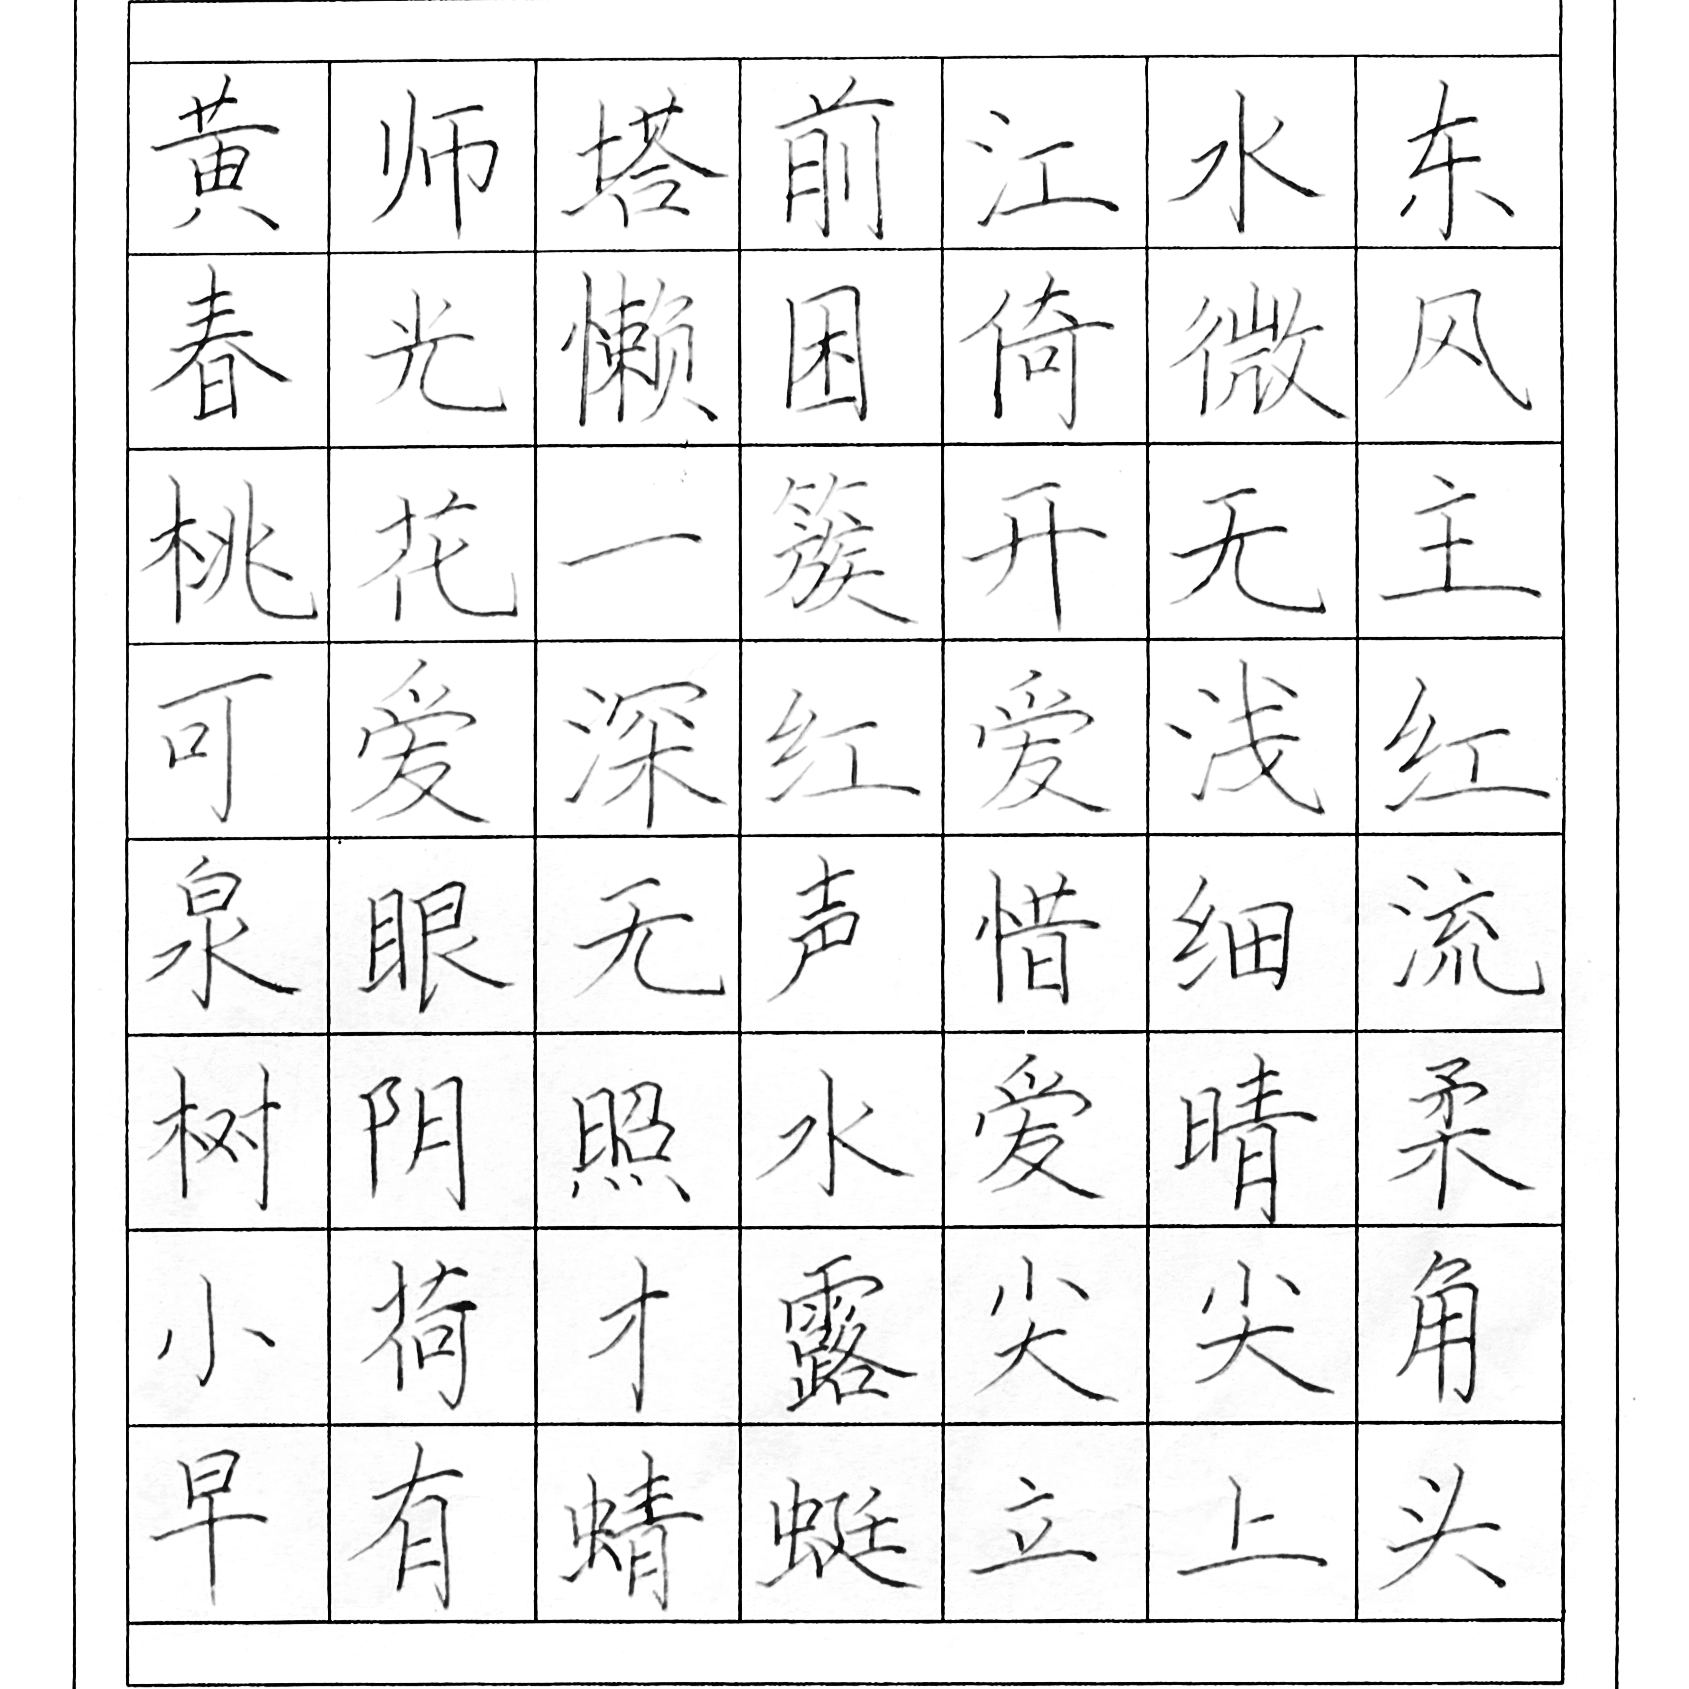 黄师塔前江水东
春光懒困倚微风
桃花一簇开无主
可爱深红爱浅红
泉眼无声惜细流
树阴照水爱晴柔
小荷才露尖尖角
早有蜻蜓立上头